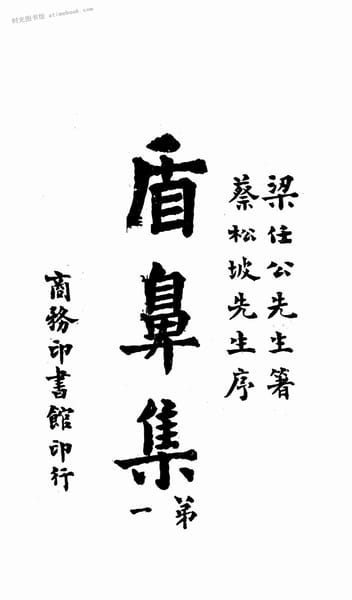 时光图书馆 atimebook.com
梁任公先生箸
蔡松坡先生序
盾鼻集
弟一
商務印書館印行